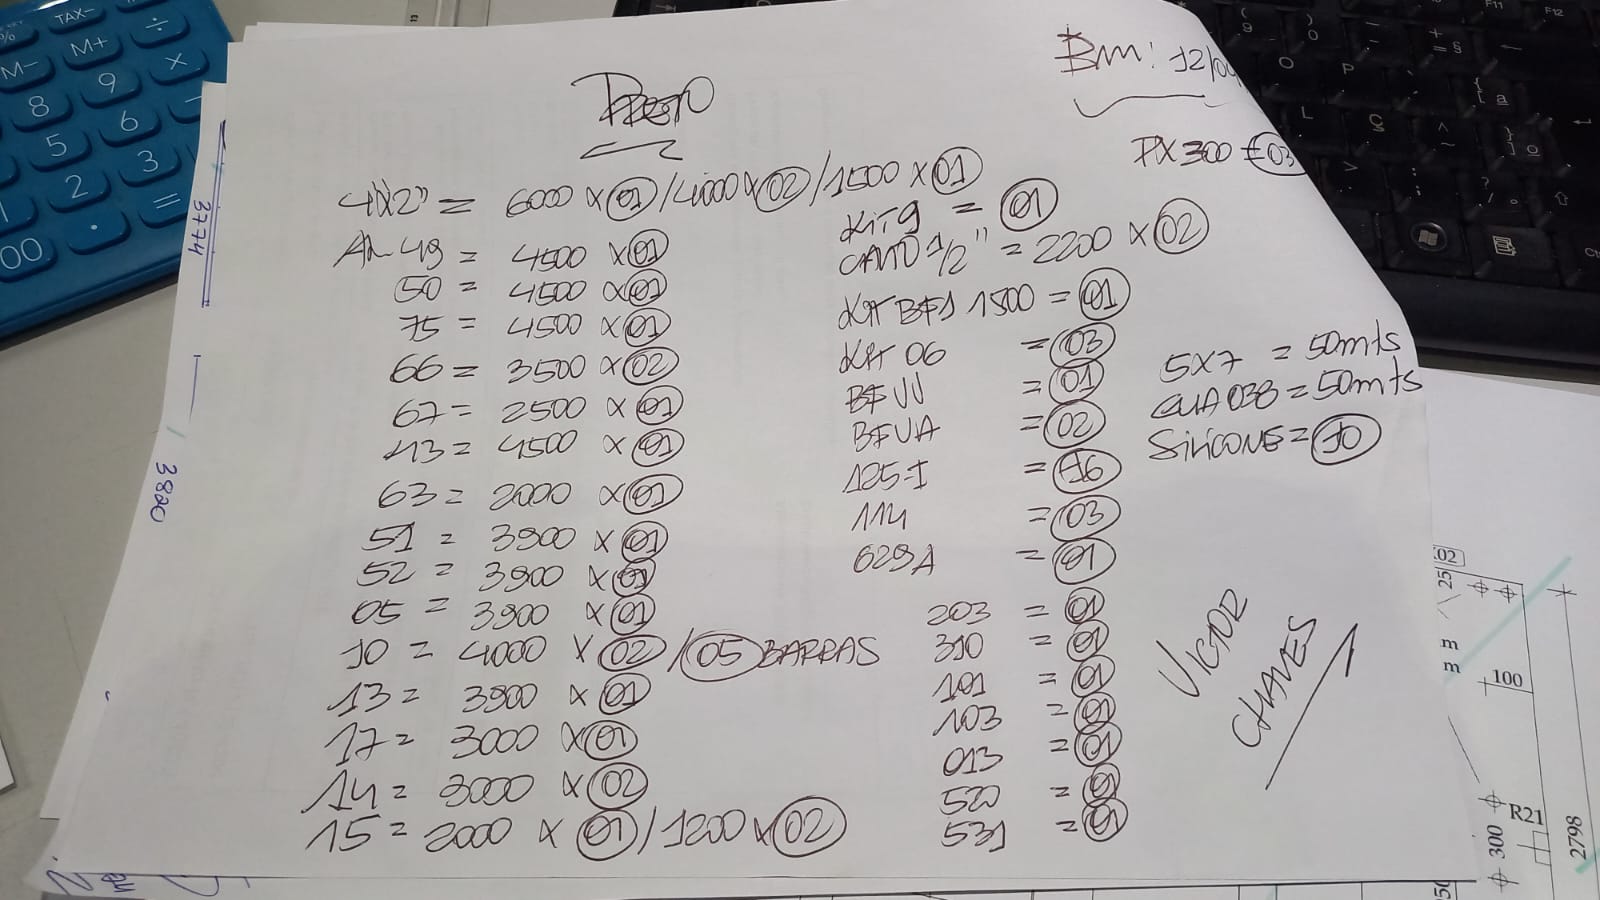 BM: 12/04
PX300 = 03
4X2" = 6000 X 01 / 4000 X 02 / 1500 X 01
AL 49 = 4500 X 01
50 = 4500 X 01
75 = 4500 X 01
66 = 3500 X 02
67 = 2500 X 01
43 = 4500 X 01
63 = 2000 X 01
51 = 3900 X 01
52 = 3900 X 01
05 = 3900 X 01
10 = 4000 X 02 / 05 BARRAS
13 = 3900 X 01
17 = 3000 X 01
14 = 3000 X 02
15 = 2000 X 01 / 1200 X 02
KIT 9 = 01
CANTO 1/2" = 2200 X 02
KIT BF1 1500 = 01
KIT 06 = 03
BFVV = 01
BFVA = 02
125-I = 16
114 = 03
629A = 01
203 = 01
310 = 01
101 = 01
103 = 01
013 = 01
520 = 01
531 = 01
5X7 = 50mts
GUA 038 = 50mts
SILICONE = 10
VICTOR
CHAVES
3774
3820
TAX-
M+
÷
M-
9
X
8
6
5
3
2
=
1
00
F11
F12
R21
300
2798
100
25
m
m